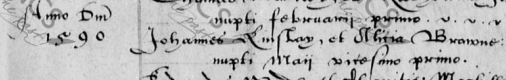 Anno Dm̄
1590
nupti februarii primo. v. v. v
Johannes Kinslay, et Alicia Browne
nupti Maii vicesimo primo.